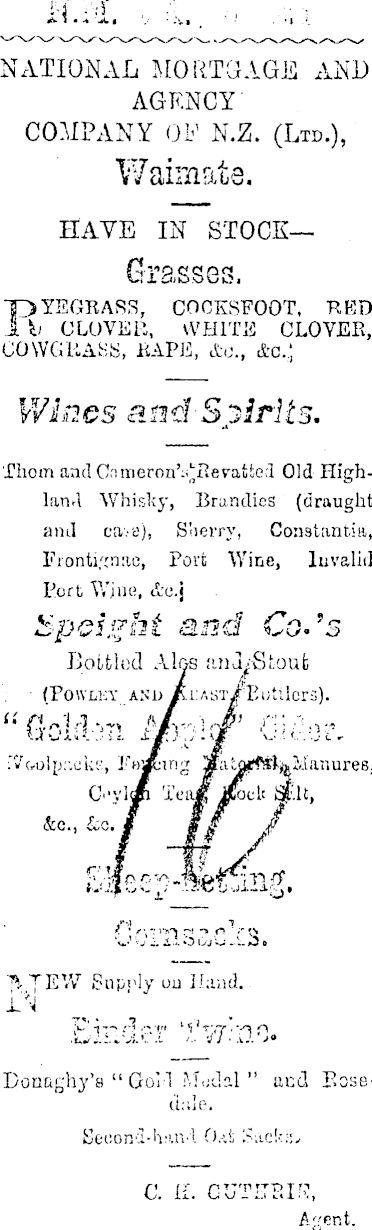 NATIONAL MORTGAGE AND
AGENCY
COMPANY OF N.Z. (LTD.),
Waimate.
HAVE IN STOCK—
Grasses.
RYEGRASS, COCKSFOOT, RED
CLOVER, WHITE CLOVER,
COWGRASS, RAPE, &c., &c.;
Wines and Spirits.
Thom and Cameron's Revatted Old High-
land Whisky, Brandies (draught
and case), Sherry, Constantia,
Frontignac, Port Wine, Invalid
Port Wine, &c.
Speight and Co.'s
Bottled Ales and Stout
(POWLEY AND KEAST, Bottlers).
"Golden Apple" Cider.
Woolpacks, Fencing Material, Manures,
Ceylon Teas, Rock Salt,
&c., &c.
16
Sheep-netting.
Cornsacks.
NEW Supply on Hand.
Binder Twine.
Donaghy's "Gold Medal" and Rose-
dale.
Second-hand Oat Sacks.
C. H. GUTHRIE,
Agent.